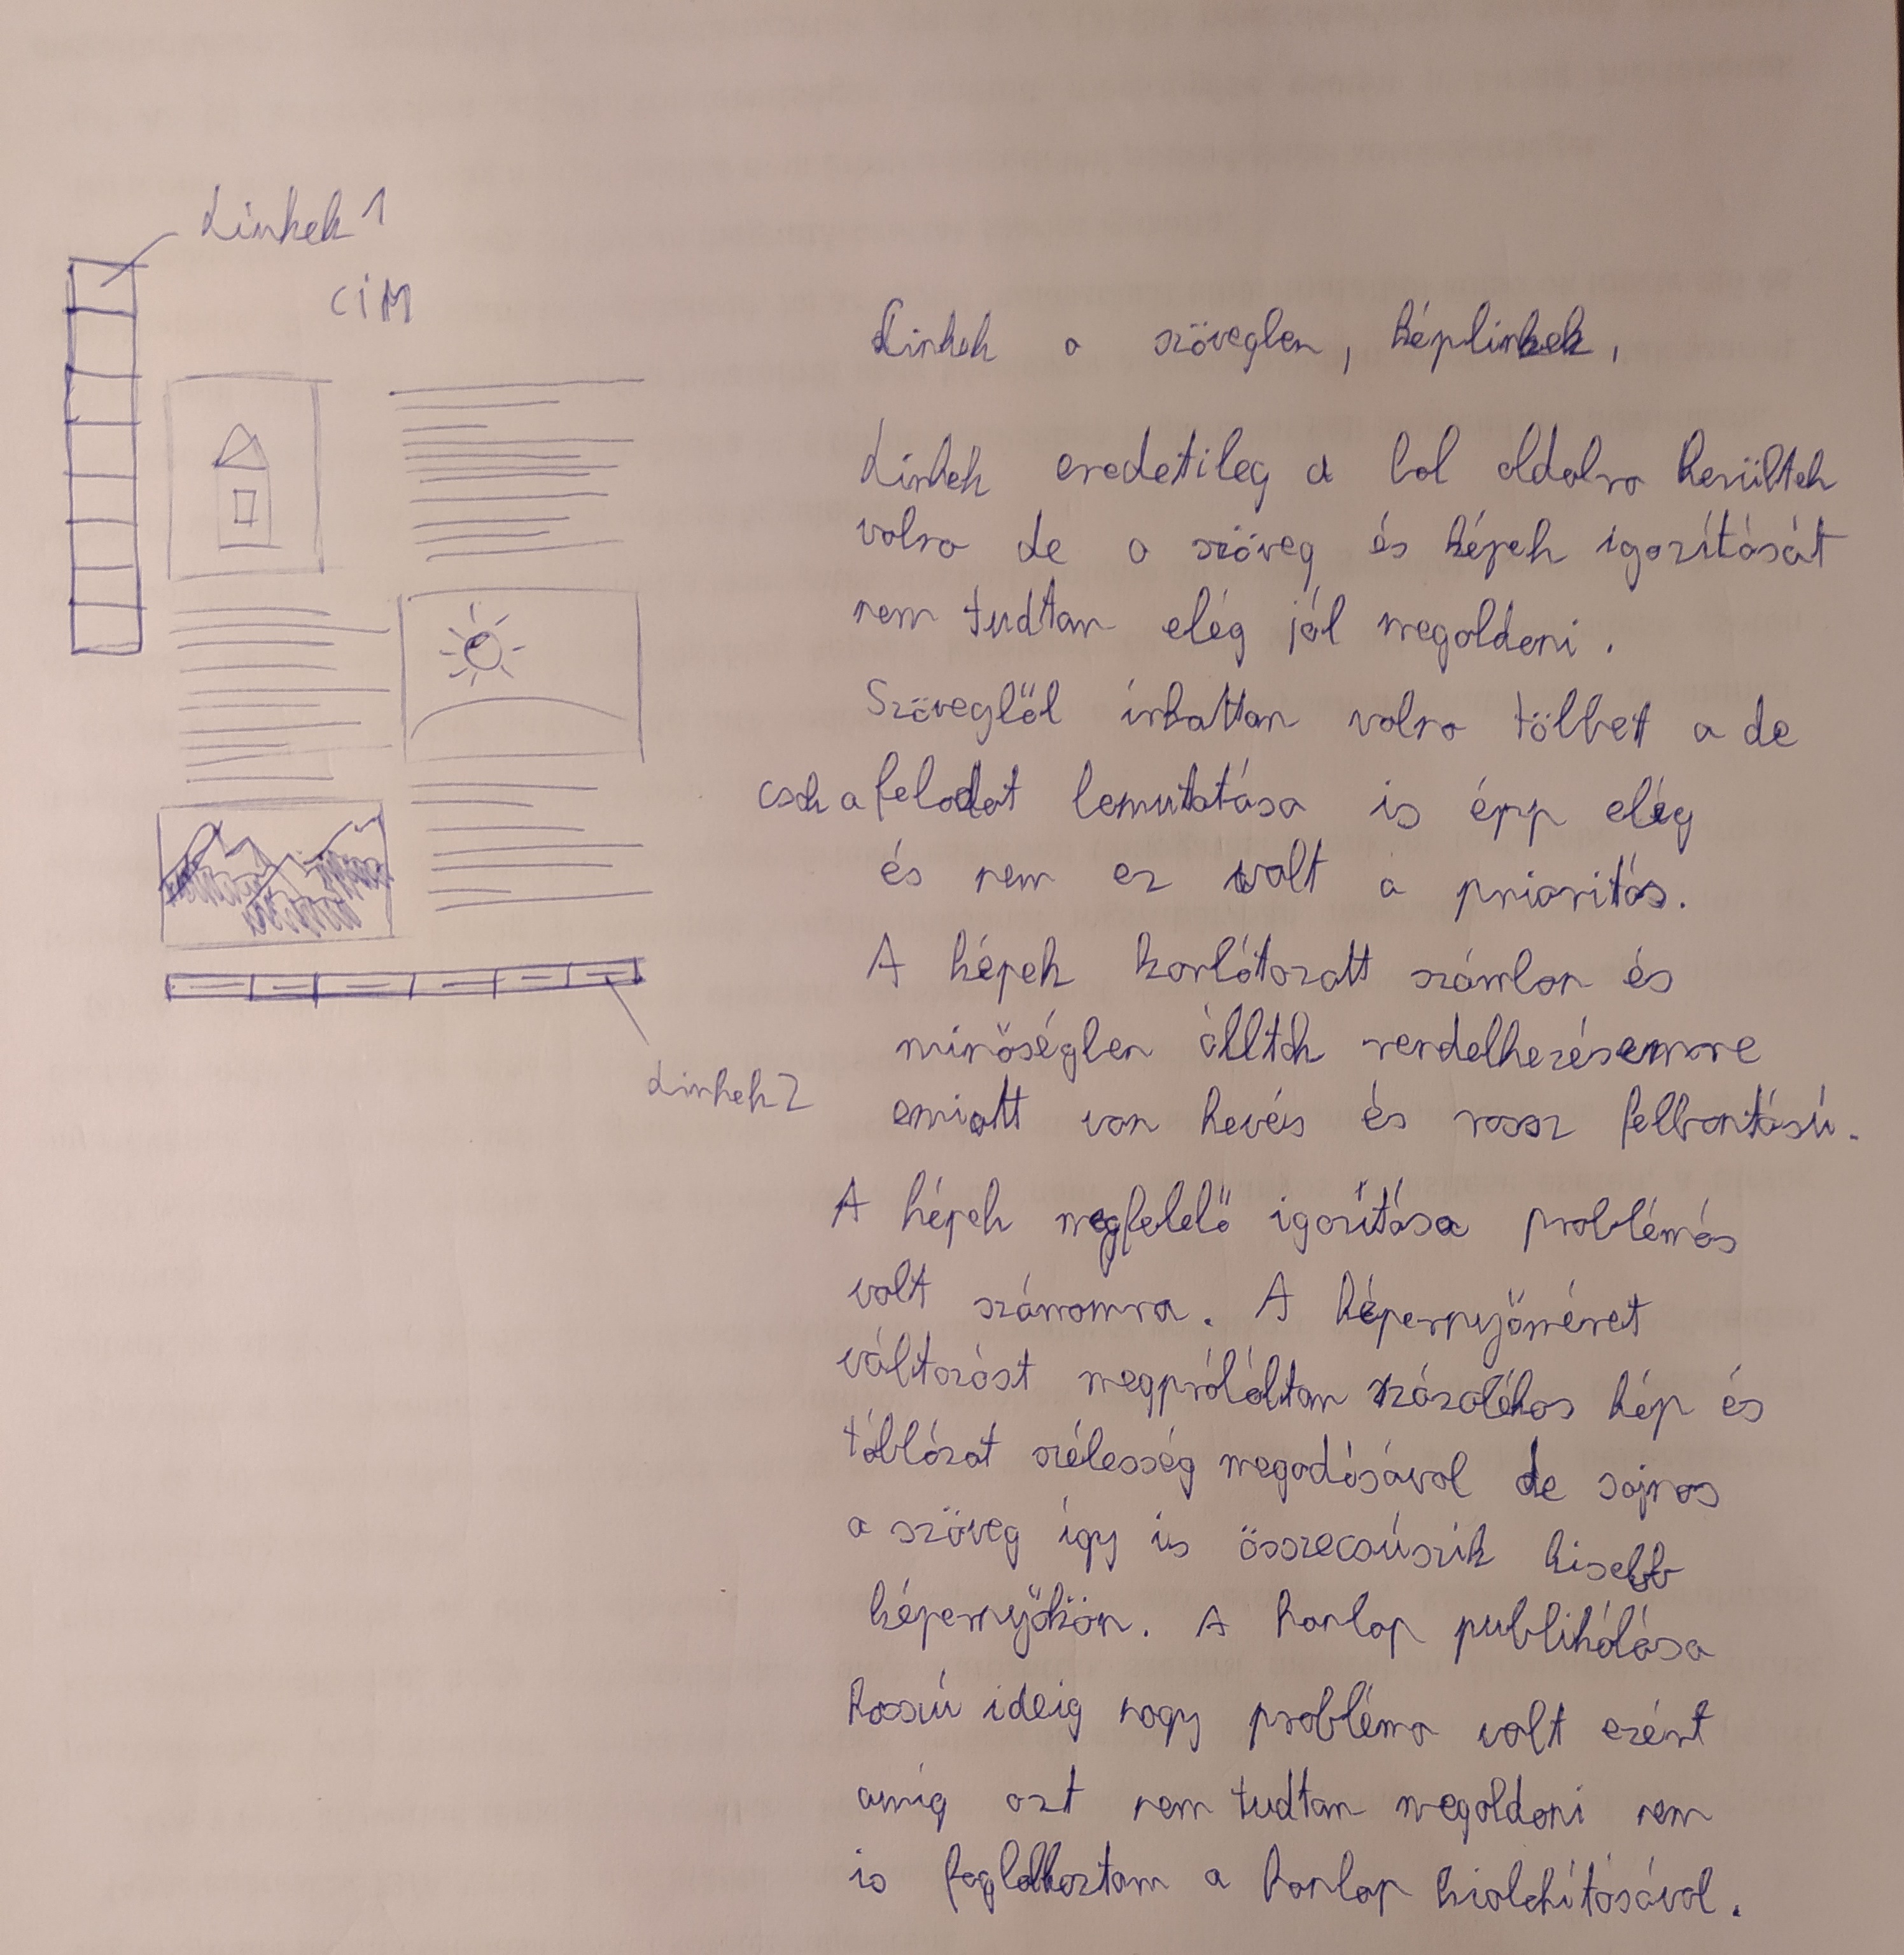 Linkek 1
CÍM
Linkek a szövegben, képlinkek,
Linkek eredetileg a bal oldalra kerültek
volna de a szöveg és képek igazítását
nem tudtam elég jól megoldani.
Szövegből írhattam volna többet a de
csak a feladat bemutatása is épp elég
és nem ez volt a prioritás.
A képek korlátozott számban és
minőségben álltak rendelkezésemre
emiatt van kevés és rossz felbontású.
Linkek 2
A képek megfelelő igazítása problémás
volt számomra. A képernyőméret
változást megpróbáltam százalékos kép és
táblázat szélesség megadásával de sajnos
a szöveg így is összecsúszik kisebb
képernyőkön. A honlap publikálása
hosszú ideig nagy probléma volt ezért
amíg azt nem tudtam megoldani nem
is foglalkoztam a honlap kialakításával.